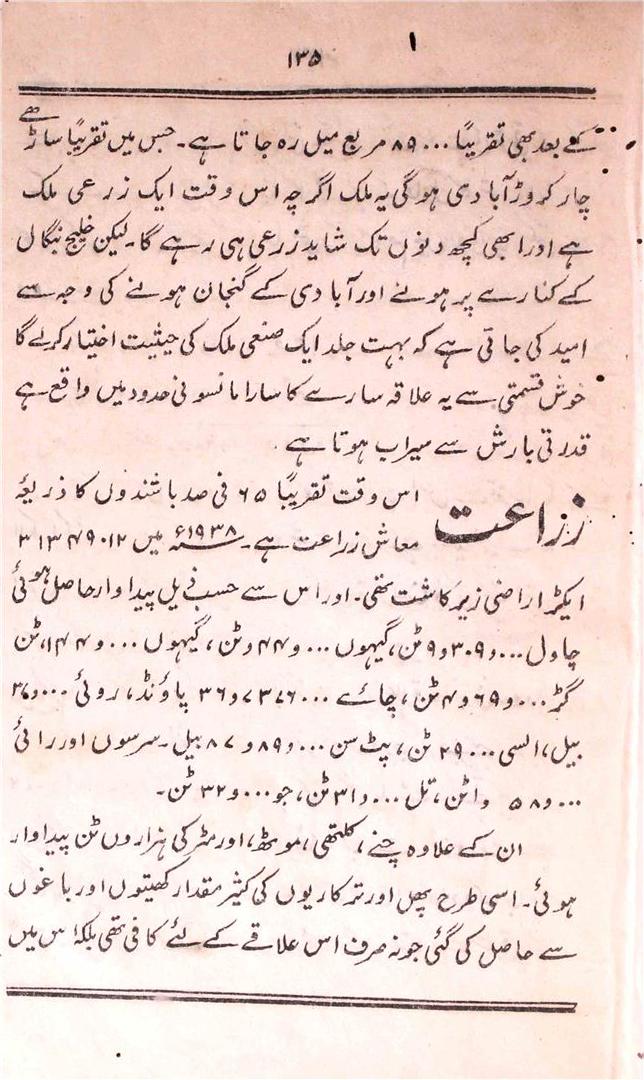 ۱۳۵
کے بعد بھی تقریباً ۸۹۰۰۰ مربع میل رہ جاتا ہے۔ جس میں تقریباً ساڑھے
چار کروڑ آبادی ہوگی یہ ملک اگرچہ اس وقت ایک زرعی ملک
ہے اور ابھی کچھ دنوں تک شاید زرعی ہی رہے گا۔ لیکن خلیج بنگال
کے کنارے پر ہونے اور آبادی کے گنجان ہونے کی وجہ سے
امید کی جاتی ہے کہ بہت جلد ایک صنعی ملک کی حیثیت اختیار کرلے گا
خوش قسمتی سے یہ علاقہ سارے کا سارا مانسونی حدود میں واقع ہے
قدرتی بارش سے سیراب ہوتا ہے۔
زراعت اس وقت تقریباً ۶۵ فی صد باشندوں کا ذریعۂ
معاش زراعت ہے۔ ۱۹۳۸ء میں ۳۱۳۴۹۰۱۲
ایکڑ اراضی زیر کاشت تھی۔ اور اس سے حسب ذیل پیداوار حاصل ہوئی
چاول ۹و۳۰۹و۰۰۰ ٹن، گیہوں ۴۴و۰۰۰ ٹن، گیہوں ۱۴۴و۰۰۰ ٹن
گڑ ۴و۶۹و۰۰۰ ٹن، چائے ۳۶و۷۳۷۶۰۰۰ پاؤنڈ، روئی ۳۷و۰۰۰
بیل، السی ۲۹۰۰۰ ٹن، پٹ سن ۸۷و۸۹و۰۰۰ بیل۔ سرسوں اور رائی
۱و۵۸و۰۰۰ ٹن، تل ۳۱و۰۰۰ ٹن، جو ۳۲و۰۰۰ ٹن۔
ان کے علاوہ چنے، کلتھی، موٹھ، اور مٹر کی ہزاروں ٹن پیداوار
ہوئی۔ اسی طرح پھل اور ترکاریوں کی کثیر مقدار کھیتوں اور باغوں
سے حاصل کی گئی جو نہ صرف اس علاقے کے لئے کافی تھی بلکہ اس میں